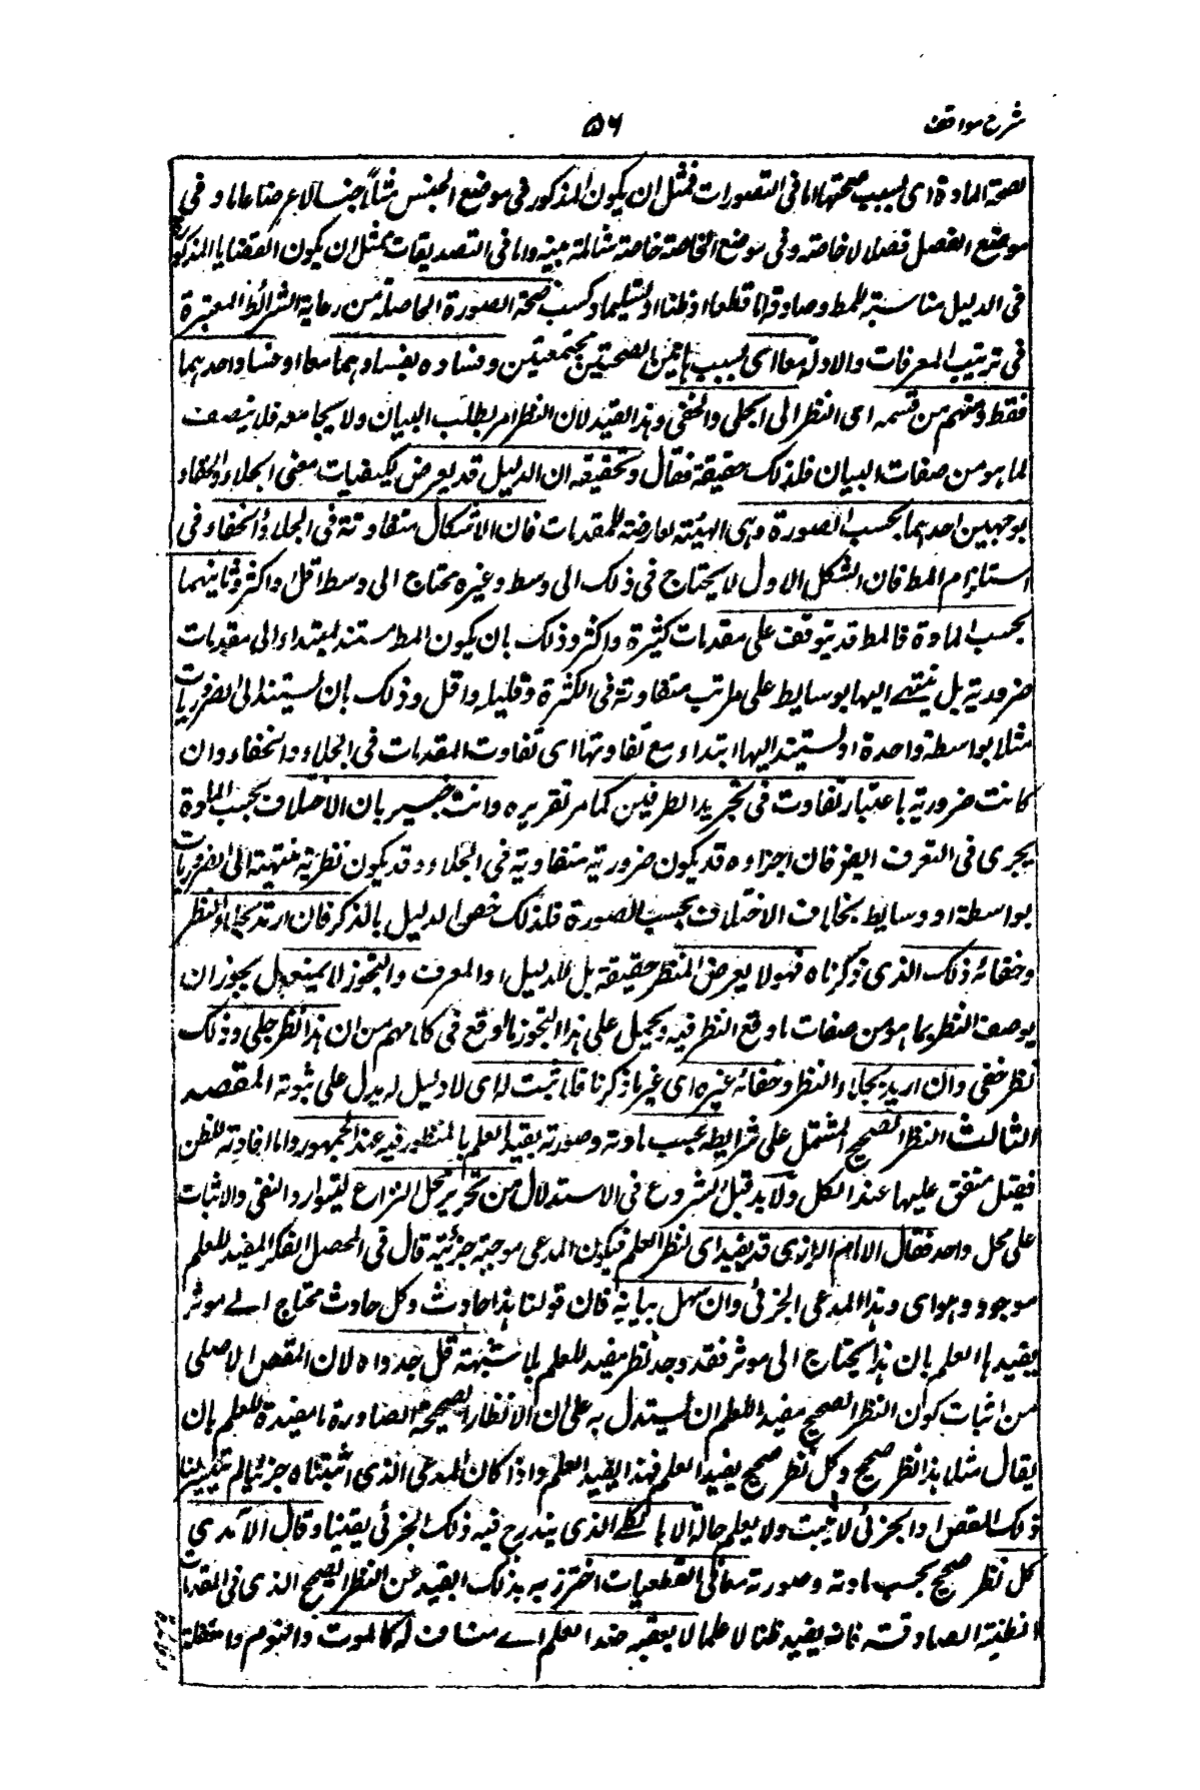 شرح مواقف
۵۶
لصحة المادة ای بسبب صحتها اما فی التصورات فمثل ان یکون المذکور فی موضع الجنس مثلا جنسا لا عرضا عاما و فی
موضع الفصل فصلا لا خاصة و فی موضع الخاصة خاصة شاملة بینة و اما فی التصدیقات فمثل ان یکون القضایا المذکورة
فی الدلیل مناسبة للمط و صادقة اما قطعا او ظنا او تسلیما و بسبب صحة الصورة الحاصلة من رعایة الشرائط المعتبرة
فی ترتیب المعرفات و الادلة معا ای بسبب هاتین الصحتین مجتمعتین و فساده بفسادهما معا او فساد احدهما
فقط و منهم من قسمه ای النظر الی الجلی و الخفی و هذا لقید لان النظر امر یطلب البیان و لا یجامعه فلا یتصف
لما هو من صفات البیان فلذلک حقیقة فقال و تحقیقه ان الدلیل قد یعرض لکیفیات معنی الجلاء و الخفاء
بوجهین احدهما بحسب الصورة و هی الهیئة العارضة للمقدمات فان الاشکال متفاوتة فی الجلاء و الخفاء فی
استلزام المط فان الشکل الاول لا یحتاج فی ذلک الی وسط و غیره محتاج الی وسط اقل او اکثر و ثانیهما
بحسب المادة فالمط قد یتوقف علی مقدمات کثیرة و اکثر و ذلک بان یکون المط مستندا ابتداء الی مقدمات
ضروریة بل ینتهی الیها بوسایط علی مراتب متفاوتة فی الکثرة و قلیلة و اقل و ذلک بان یستند الی الضروریات
مثلا بواسطة واحدة او یستند الیها ابتداء مع تفاوتها ای تفاوت المقدمات فی الجلاء و الخفاء و ان
کانت ضروریة باعتبار تفاوت فی تجرید الطرفین کما مر تقریره و انت خبیر بان الاختلاف بحسب المادة
یجری فی التعرف ایضا فان اجزاءه قد یکون ضروریة متفاوتة فی الجلاء و قد یکون نظریة منتهیة الی الضروریات
بواسطة او وسایط بخلاف الاختلاف بحسب الصورة فلذلک خص الدلیل بالذکر فان ارید بجلاء النظر
و خفائه ذلک الذی ذکرناه فهو لا یعرض للنظر حقیقة بل للدلیل او المعرف و التجوز لا یمنع بل یجوز ان
یوصف النظر بما هو من صفات ما وقع النظر فیه و یحمل علی هذا التجوز ما وقع فی کلامهم من ان هذا نظر جلی و ذلک
نظر خفی و ان ارید بجلاء النظر و خفائه غیره ای غیر ما ذکرنا فلا ثبت له ای لا دلیل له یدل علی ثبوته المقصد
الثالث النظر الصحیح المشتمل علی شرایطه بحسب مادته و صورته یفید العلم بالمنظور فیه عند الجمهور و اما افادته للظن
فقیل متفق علیها عند الکل و لا بد قبل الشروع فی الاستدلال من تحریر محل النزاع لیتوارد النفی و الاثبات
علی محل واحد فقال الامام الرازی قد یفید ای النظر العلم فیکون المدعی موجبة جزئیة قال فی المحصل الفکر المفید للعلم
موجود و هو ای و هذا المدعی الجزئی و ان سهل بیانه فان قولنا هذا حادث و کل حادث محتاج الی موثر
یفیدها العلم بان هذا یحتاج الی موثر فقد وجد نظر مفید للعلم بلا شبهة قل جدواه لان المقصد الاصلی
من اثبات کون النظر الصحیح مفیدا للعلم ان یستدل به علی ان الانظار الصحیحة الصادرة منا مفیدة للعلم بان
یقال مثلا هذا نظر صحیح و کل نظر صحیح یفید العلم فهذا یفید العلم و اذا کان المدعی الذی اثبتناه جزئیا لم یتیسر لنا
ذلک المقصد اذ الجزئی لا یثبت و لا یعلم حاله الا بالکلی الذی یندرج فیه ذلک الجزئی یقینا و قال الآمدی
کل نظر صحیح بحسب مادته و صورته معا فی القطعیات احترز به بذلک القید عن النظر الصحیح الذی فی المقدمات
الظنیة الصادقة فانه یفید ظنا لا علما لا یعقبه ضد العلم ای مناف له کالموت و النوم و الغفلة